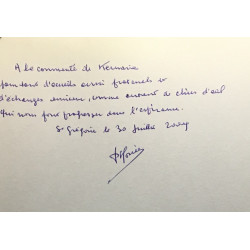 A la communauté de Kernaria
pour tant d'accueils aussi fraternels et
d'échanges comme autant de clins d'œil
qui nous font progresser dans l'espérance.
St Grégoire le 30 Juillet 2004